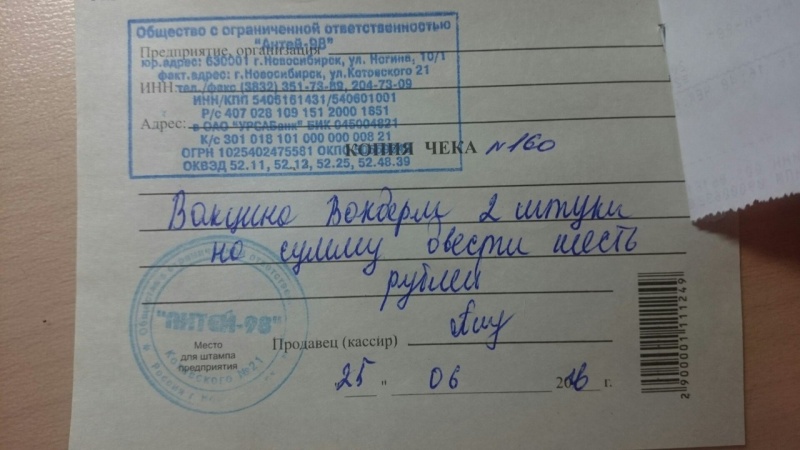 Общество с ограниченной ответственностью
"Антей-98"
Предприятие, организация
юр.адрес: 630001 г.Новосибирск, ул. Ногина, 10/1
факт.адрес: г.Новосибирск, ул.Котовского 21
ИНН
тел./факс (3832) 351-73-89, 204-73-09
ИНН/КПП 5406161431/540601001
Р/с 407 028 109 151 2000 1851
Адрес:
в ОАО "УРСАБанк" БИК 045004821
К/с 301 018 101 000 000 008 21
ОГРН 1025402475581 ОКПО
КОПИЯ ЧЕКА №160
ОКВЭД 52.11, 52.13, 52.25, 52.48.39
Вакцина Вакдерм 2 штуки
на сумму двести шесть
рублей
"АНТЕЙ-98"
Котовского №21
Место
для штампа
предприятия
Продавец (кассир)
"25" 06 2016 г.
2900001111249